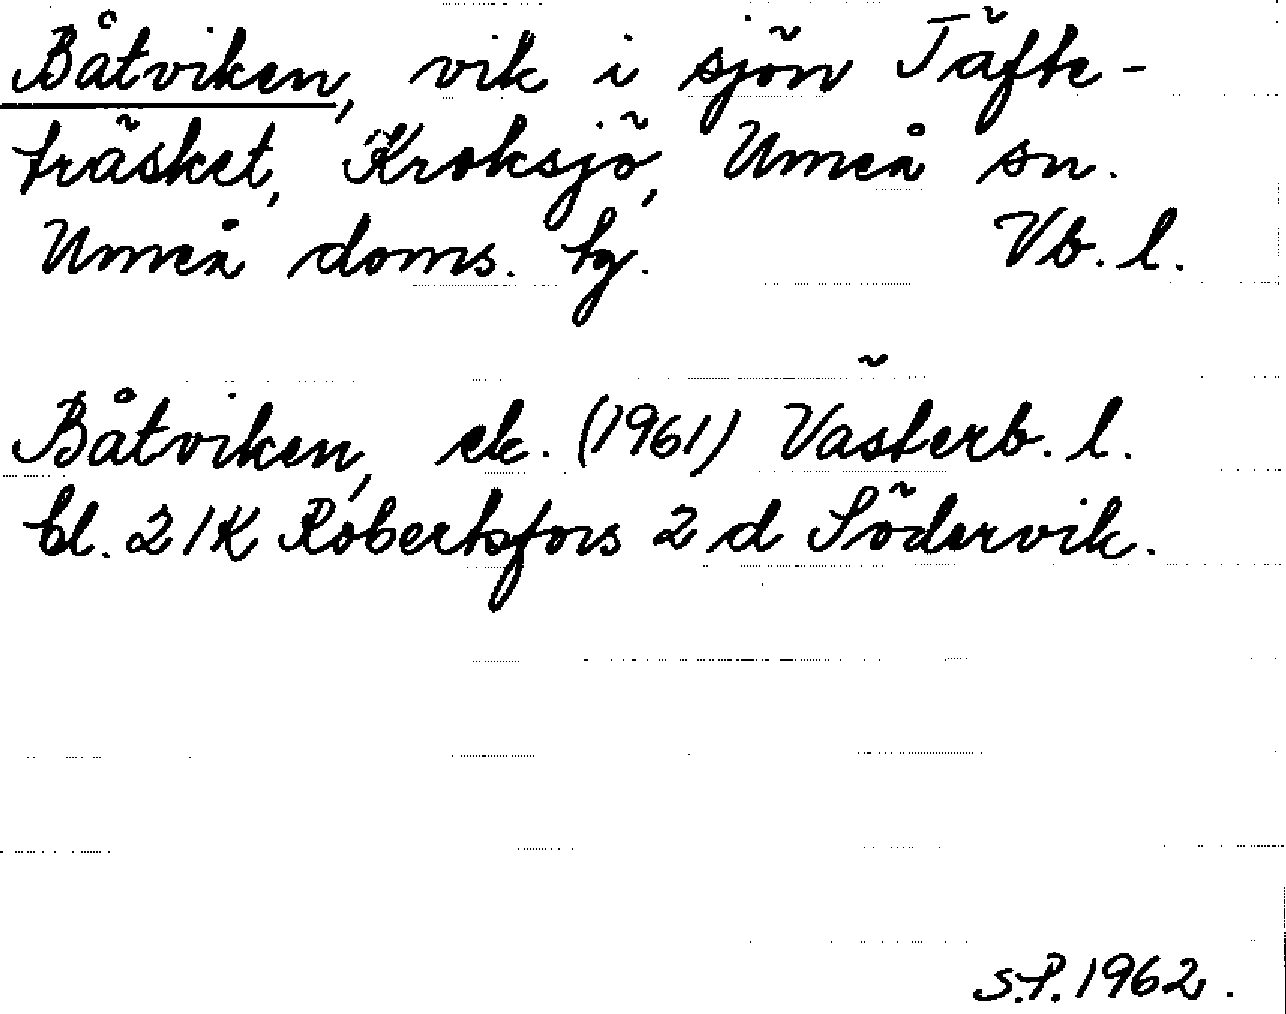 Båtviken, vik i sjön Täfte-
träsket, Kroksjö, Umeå sn.
Umeå doms. tg. Vb. l.
Båtviken, ek. (1961) Västerb. l.
bl. 21K Robertsfors 2 d Södervik.
S.P. 1962.